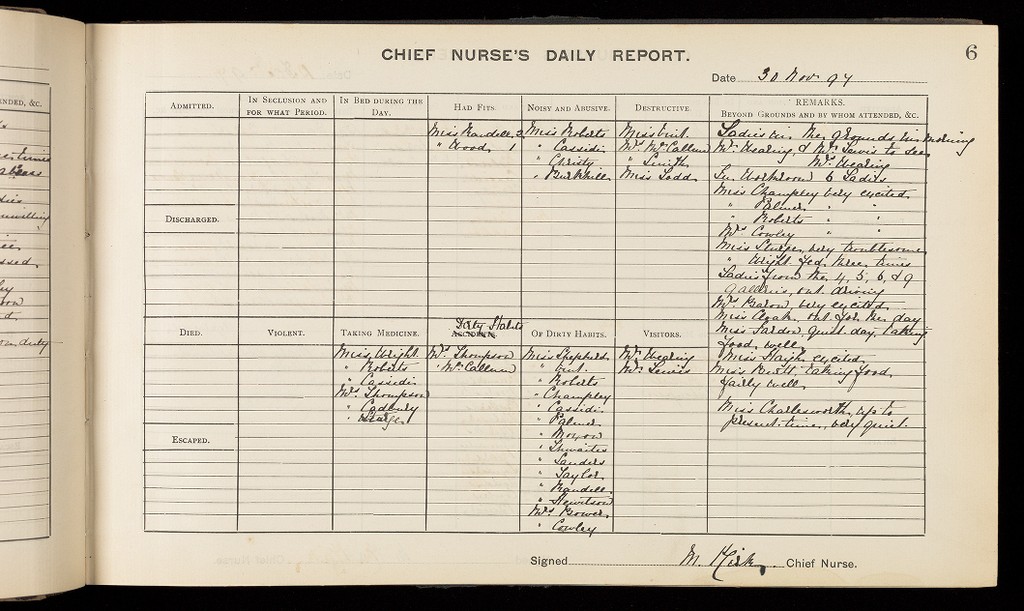 ENDED, &C.
CHIEF NURSE'S DAILY REPORT.
6
Date 30 Nov 97
ADMITTED.
IN SECLUSION AND FOR WHAT PERIOD.
IN BED DURING THE DAY.
HAD FITS.
Miss Randell 2
" Wood 1
NOISY AND ABUSIVE.
Miss Roberts
" Cassidi
" Christy
" Burkhill
DESTRUCTIVE
Miss Vint
Mrs McCallum
" Smith
Miss Dodd
REMARKS.
BEYOND GROUNDS AND BY WHOM ATTENDED, &C.
Ladies in the grounds in morning
Mr Hearing & Mr Lewis to see
Mrs Hearing
In Workroom 6 Ladies
Miss Champley very excited
" Palmer " "
" Roberts " "
Mrs Cowley " "
Miss Sturge very troublesome
" Wright fed three times
Ladies from the 4, 5, 6, & 9
galleries, out driving
Mrs Baron very excited
Miss Cloak out for the day
Miss Jardon quiet day, taking
food well
Miss Haigh excited
Miss Pewtt taking food
fairly well
Miss Charlesworth, up to
present time, very quiet
DISCHARGED.
DIED.
VIOLENT.
TAKING MEDICINE.
Miss Wright
" Roberts
" Cassidi
Mrs Thompson
" Cadbury
" Sturge
Dirty Habits
ACCIDENTS.
Mrs Thompson
" McCallum
OF DIRTY HABITS.
Miss Shepherd
" Vint
" Roberts
" Champley
" Cassidi
" Palmer
" Moxon
" Thwaites
" Sanders
" Taylor
" Randell
" Hewitson
Mrs Bower
" Cowley
VISITORS.
Mr Hearing
Mr Lewis
ESCAPED.
Signed M. Kirk Chief Nurse.